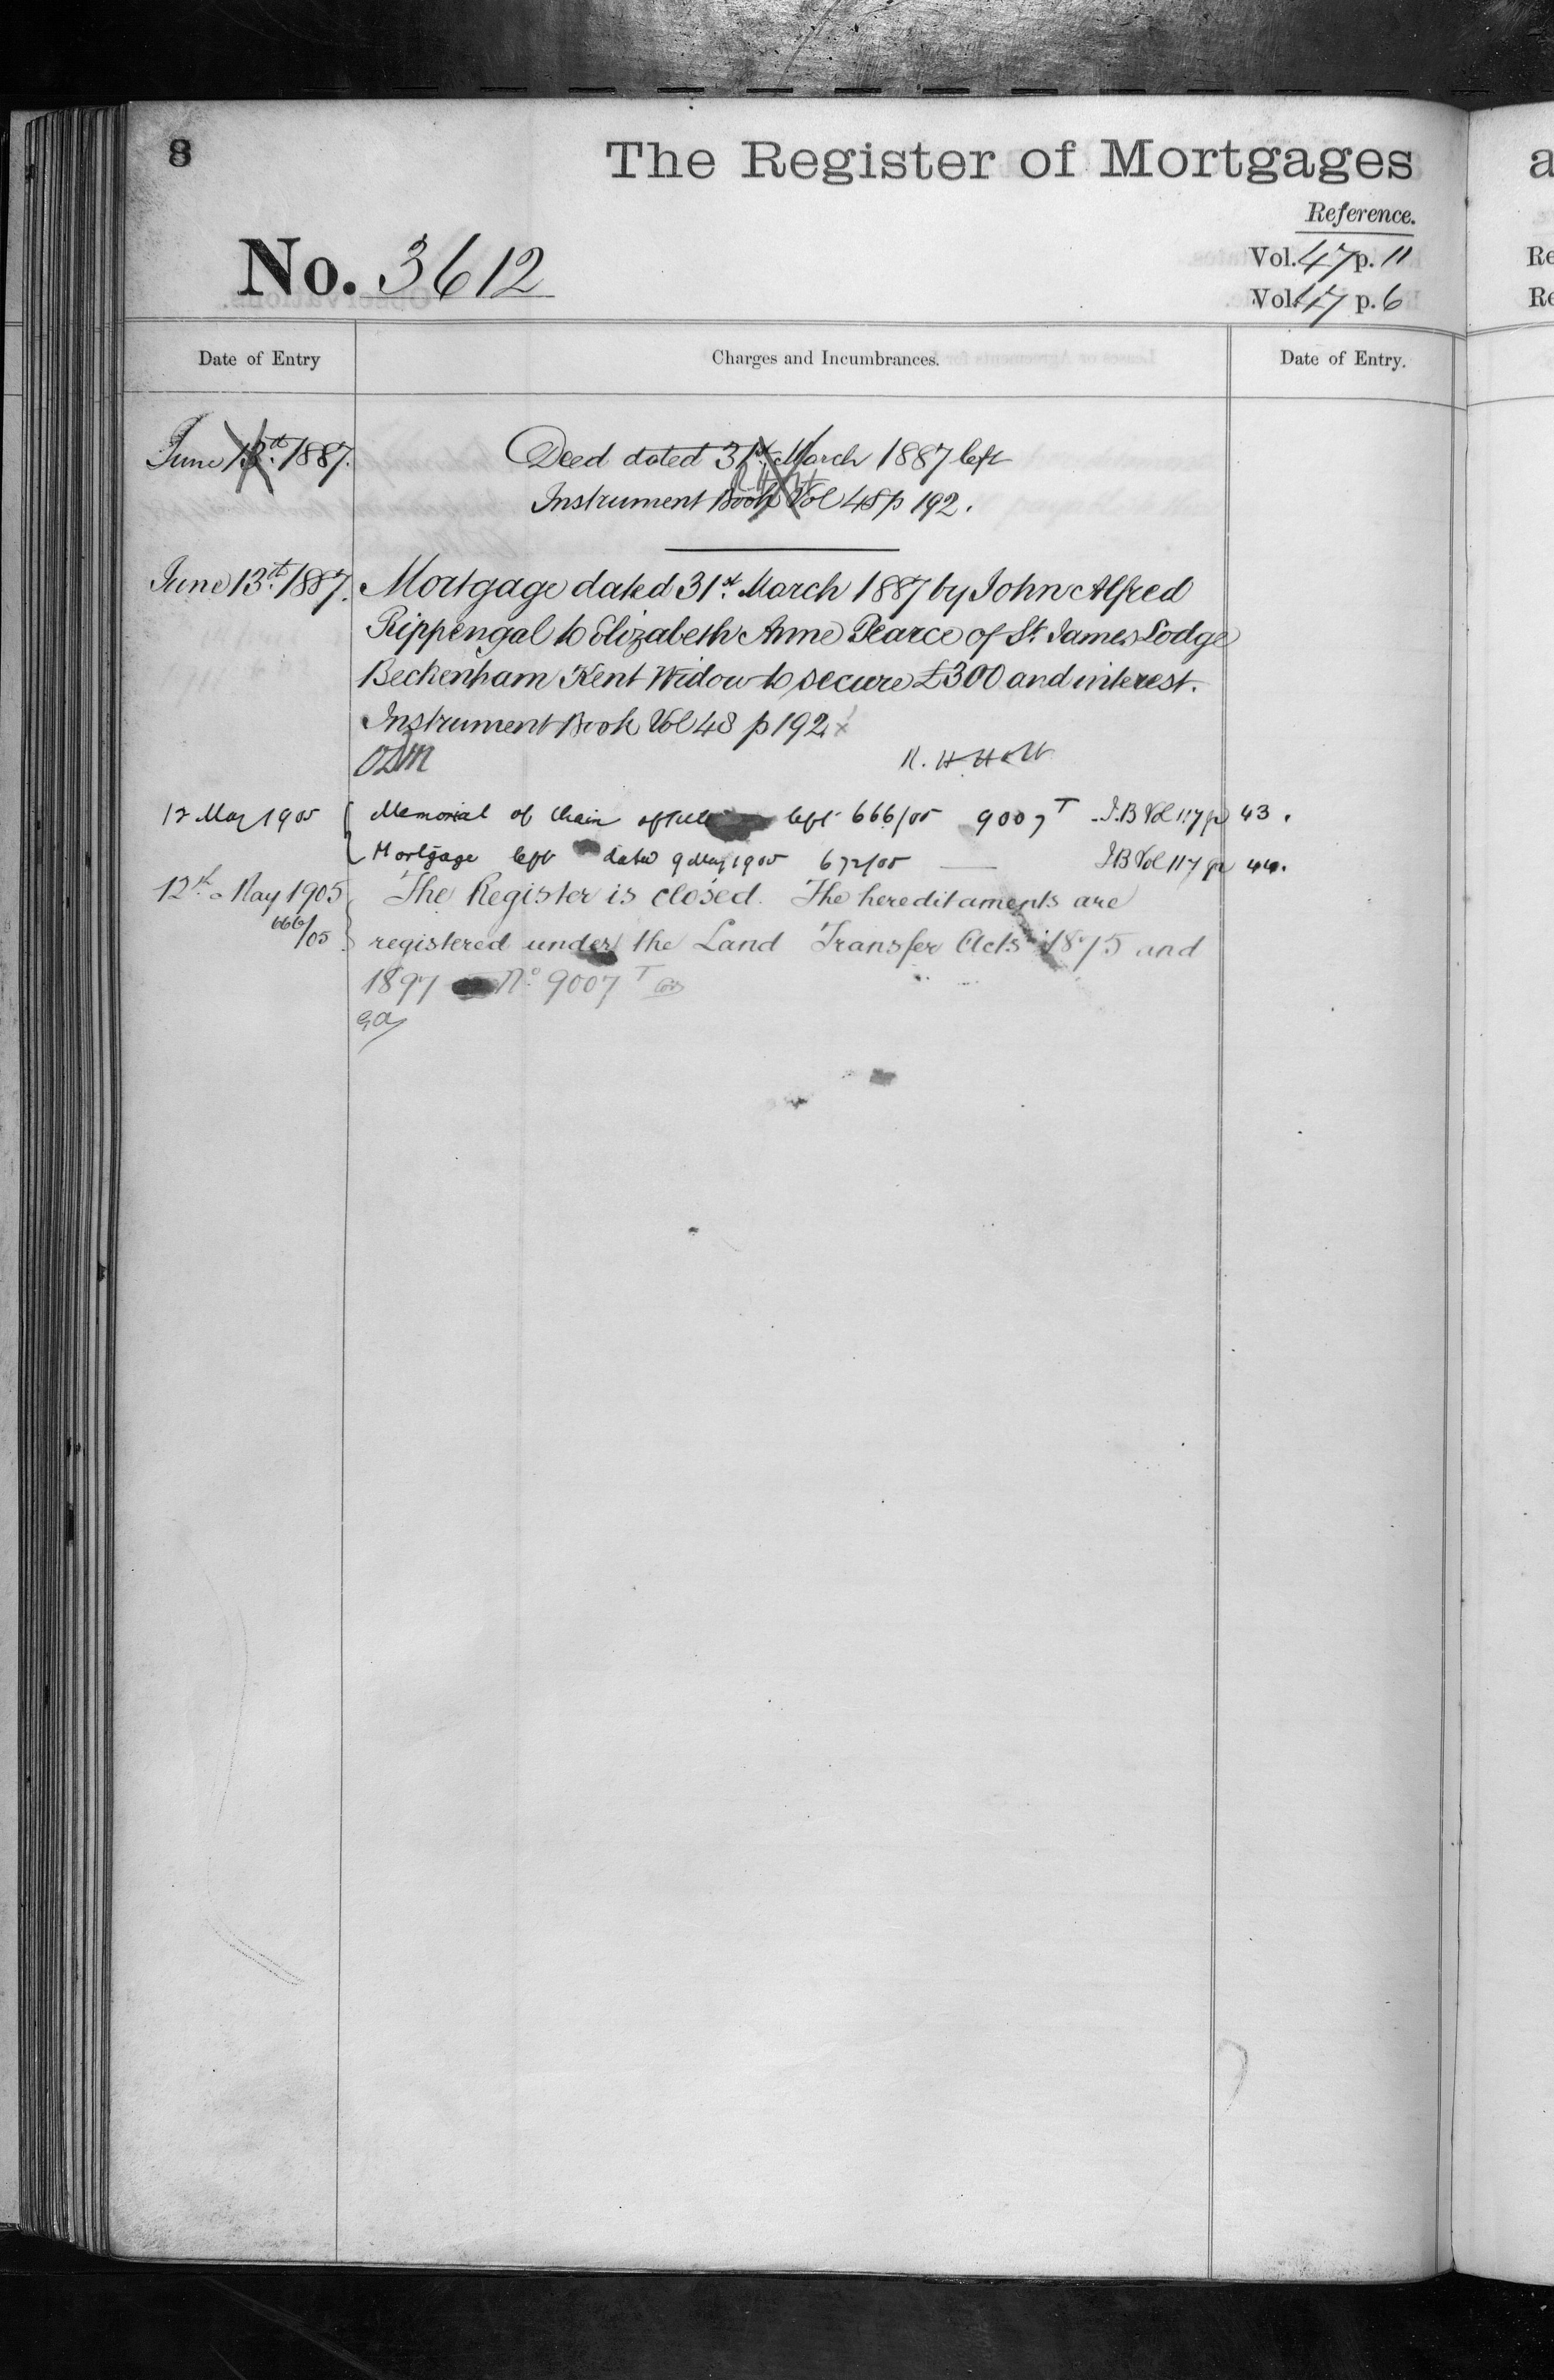 8
The Register of Mortgages
a
Reference.
No. 3612
Vol. 47 p. 11
Re
Vol. 47 p. 6
Re
Date of Entry
Charges and Incumbrances.
Date of Entry.
June 13th. 1887.
Deed dated 31st. March 1887 left
Instrument Book Vol 48 p 192.
June 13th. 1887.
Mortgage dated 31st. March 1887 by John Alfred
Rippengal to Elizabeth Anne Pearce of St. James Lodge
Beckenham Kent Widow to secure £300 and interest.
Instrument Book Vol 48 p 192
R. H. Holt
12 May 1905
Memorial of Chain of title left 666/05 9007 T I.B Vol 117 p 43.
Mortgage left dated 9 May 1905 672/05 — I B Vol 117 p 44.
12th May 1905
666/05
The Register is closed. The hereditaments are
registered under the Land Transfer Acts 1875 and
1897 No. 9007 T